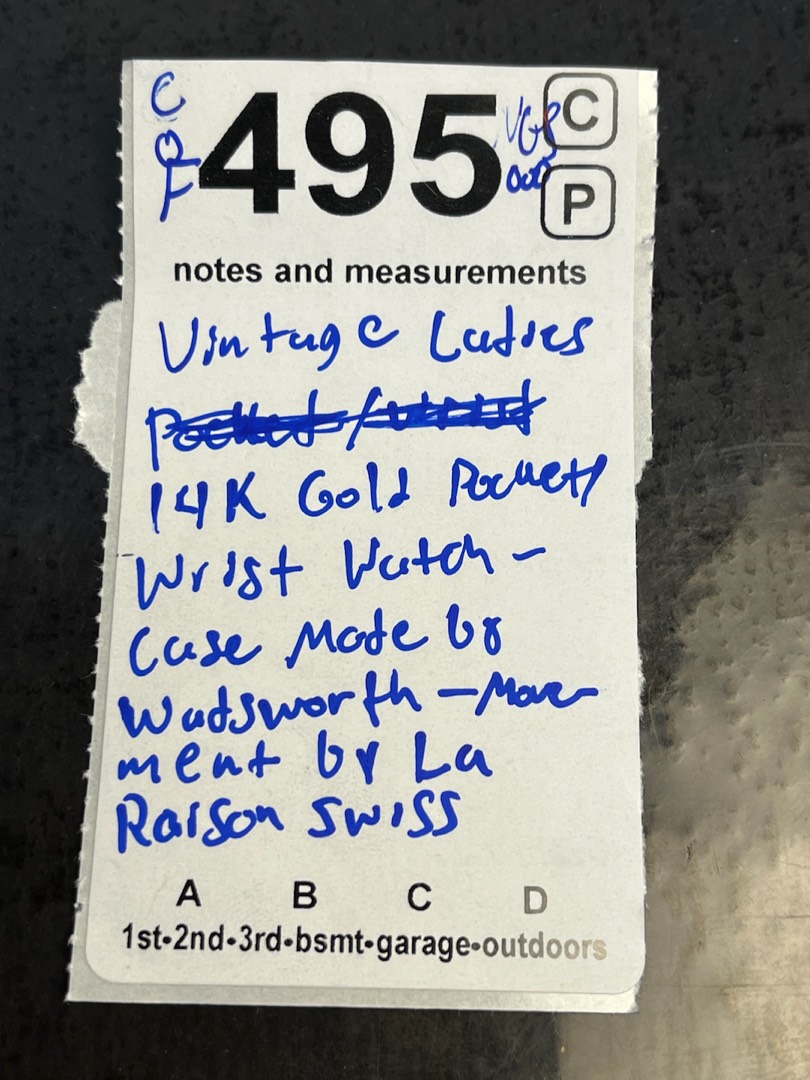 495
C
P
notes and measurements
Vintage Ladies
14K Gold Pocket/
Wrist Watch -
Case Made by
Wadsworth - Move-
ment by La
Raison Swiss
A B C D
1st•2nd•3rd•bsmt•garage•outdoors